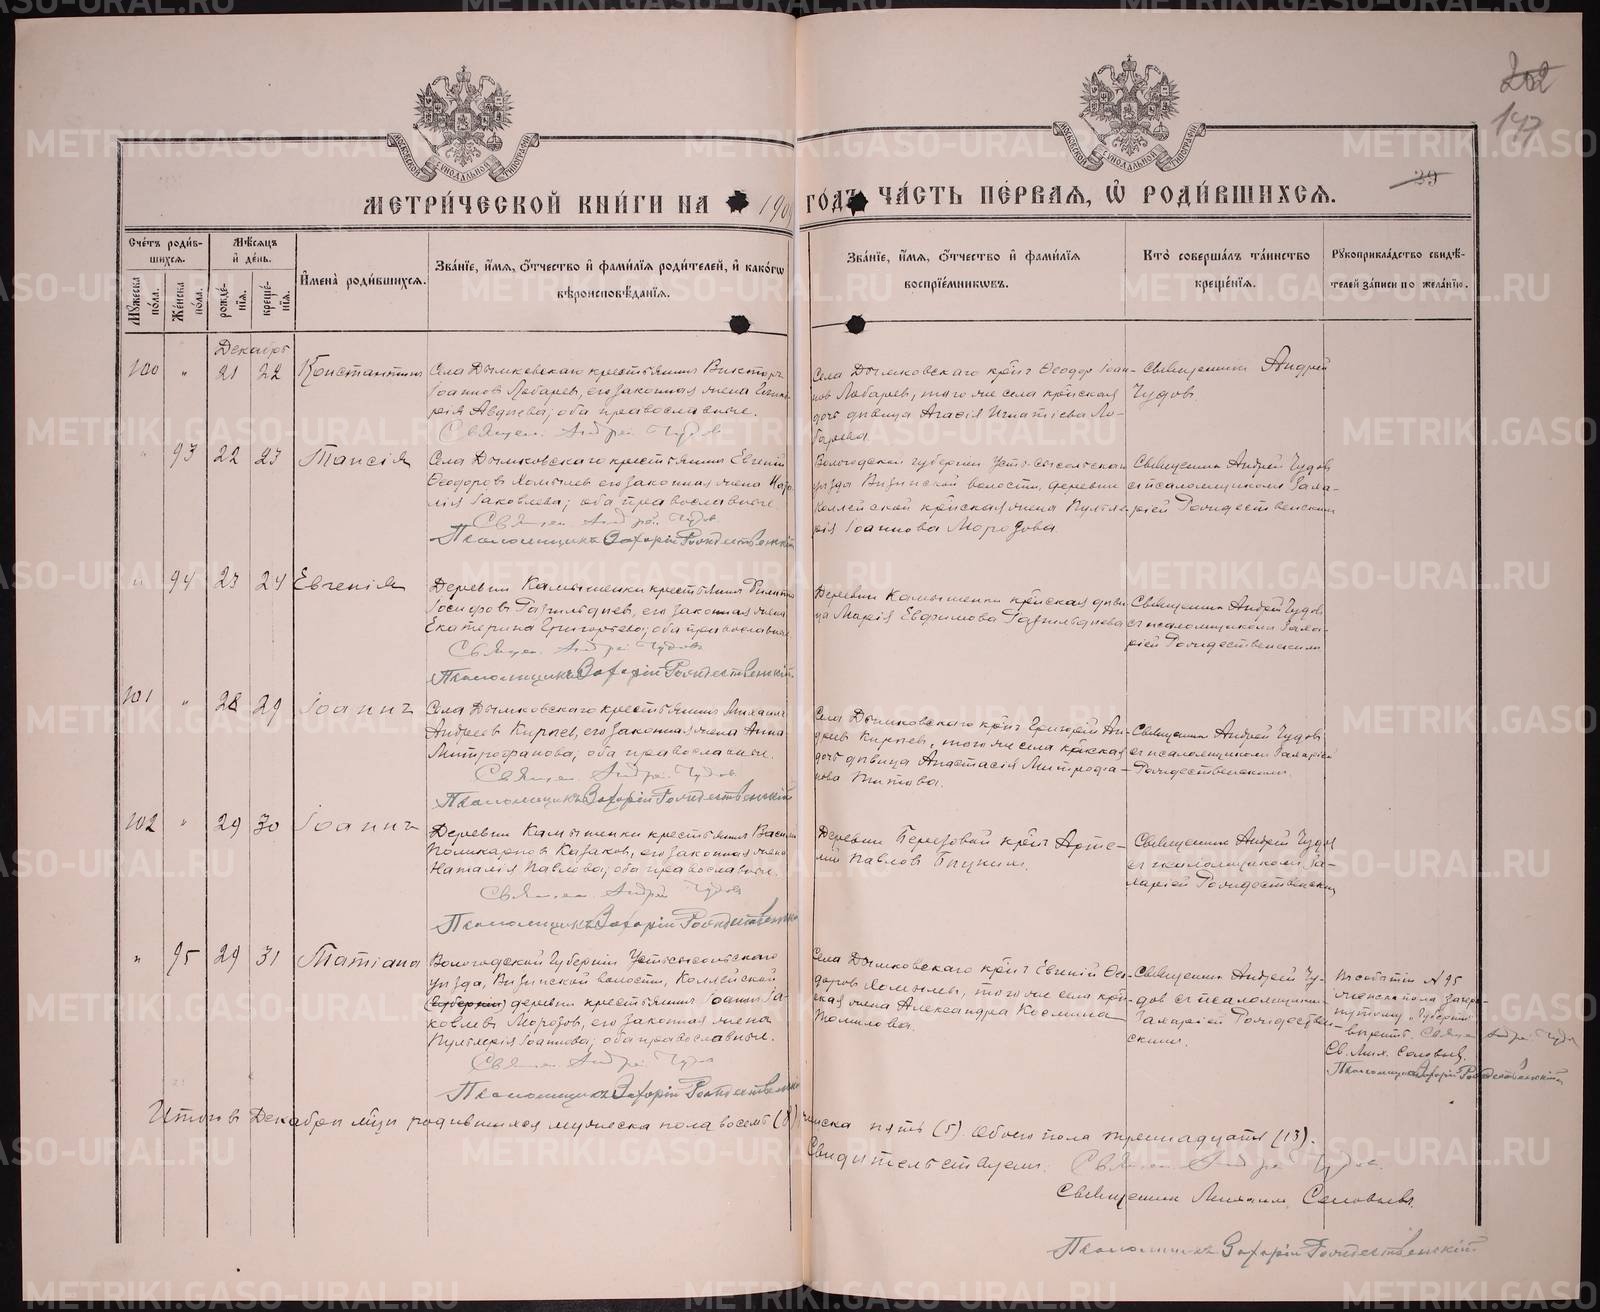 202
147
39
МОСКОВСКОЙ СѴНОДАЛЬНОЙ ТИПОГРАФІИ
МОСКОВСКОЙ СѴНОДАЛЬНОЙ ТИПОГРАФІИ
МЕТРИ́ЧЕСКОЙ КНИ́ГИ НА 190 ГО́ДЪ ЧА́СТЬ ПЕ́РВАЯ, Ѡ РОДИ́ВШИХСЯ.
Сче́тъ роди́в-
шихся.
Мѣ́сяцъ
и де́нь.
Му́жеска по́ла.
Же́нска по́ла.
рожде́-
нїя.
креще́-
нїя.
Имена̀ роди́вшихся.
Зва́нїе, и́мя, ѻ́тчество и фами́лїя роди́телей, и како́гѡ
вѣроисповѣ́данїя.
Зва́нїе, и́мя, ѻ́тчество и фами́лїя
воспрїе́мникѡвъ.
Кто̀ соверша́лъ та́инство
креще́нїя.
Рꙋкоприкла́дство свидѣ́-
телей за́писи по жела́нїю.
Декабрь
100 " 21 22 Константинъ
Села Дымковскаго крестьянинъ Викторъ
Іоанновъ Лобаревъ, его законная жена
Авдиева; оба православные.
Священ. Андрей Чудов
Села Дымковскаго кр-нъ Ѳеодоръ Іоан-
новъ Лобаревъ, того же села кр-нская
дочь дѣвица Агаѳія Игнатіева Ло-
барева.
Священникъ Андрей
Чудовъ
" 93 22 23 Таисія
Села Дымковскаго крестьянинъ Евгеній
Ѳеодоровъ Хомылев его законная жена
Іаковлева; оба православные.
Священ. Андрей Чудов
Псаломщикъ Захарій Рождественскій
Вологодской губерніи Усть-Сысольскаго
уѣзда Визинской волости, деревни
Коллейской кр-нская жена Пулхе-
рія Іоаннова Морозова.
Священникъ Андрей Чудовъ
съ псаломщикомъ Заха-
ріей Рождественским
" 94 23 24 Евгенія
Деревни Камышенки крестьянинъ
его законная жена
Екатерина Григорьева; оба православные
Священ. Андрей Чудовъ
Псаломщикъ Захарій Рождественскій.
Деревни Камышенки кр-нская дѣви-
ца Марія Евфимова
Священникъ Андрей Чудовъ
съ псаломщикомъ Заха-
ріей Рождественскимъ
101 " 28 29 Іоаннъ
Села Дымковскаго крестьянинъ Михаилъ
Андреевъ Кирпевъ, его законная жена Анна
Митрофанова; оба православные.
Священ. Андрей Чудов
Псаломщикъ Захарій Рождественскій
Села Дымковскаго кр-нъ Григорій Ан-
дреев Кирпев, того же села кр-нская
дочь дѣвица Анастасія Митрофа-
нова Титова.
Священникъ Андрей Чудовъ
съ псаломщикомъ Захаріей
Рождественскимъ.
102 " 29 30 Іоаннъ
Деревни Камышенки крестьянинъ Васили
Поликарповъ Казаков, его законная жена
Наталія Павлова; оба православные.
Священ. Андрей Чудов
Псаломщикъ Захарій Рождественскій
Деревни Березовой кр-нъ Арте-
мій Павлов
Священникъ Андрей Чудов
съ псаломщикомъ За-
харіей Рождественским
" 95 29 31 Татіана
Вологодской губерніи Устьсысольскаго
уѣзда, Визинской волости, Коллейской
(губерніи) деревни крестьянинъ Іоаннъ Іа-
ковлевъ Морозов, его законная жена
Пулхерія Іоаннова; оба православные.
Священ. Андрей Чудов
Псаломщикъ Захарій Рождественскій
Села Дымковскаго кр-нъ Евгеній Ѳео-
доровъ Хомылевъ, того же села кр-н-
ская жена Александра Космина
Томилова.
Священникъ Андрей Чу-
довъ съ псаломщикомъ
Захаріей Рождествен-
скимъ.
В событіи № 95
женска пола зачерк-
нутому "губерніи"
вѣрить. Священ. Андрей Чудов
Св. Мих. Соловьев.
Псаломщикъ Захарій Рождественскій
Итого в Декабрѣ м-цѣ родившихся мужеска пола восемь (8), женска пять (5). Обоего пола тринадцать (13).
Свидѣтельствуемъ: Священ. Андрей Чудов.
Священник Михаилъ Соловьевъ.
Псаломщикъ Захарій Рождественскій
METRIKI.GASO-URAL.RU